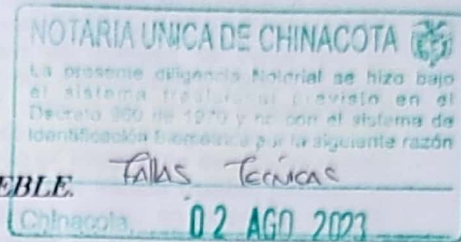 NOTARIA UNICA DE CHINACOTA
La presente diligencia Notarial se hizo bajo
el sistema tradicional previsto en el
Decreto 960 de 1970 y no con el sistema de
Identificación Biometrica por la siguiente razón
Fallas Tecnicas
EBLE.
Chinacota, 02 AGO 2023